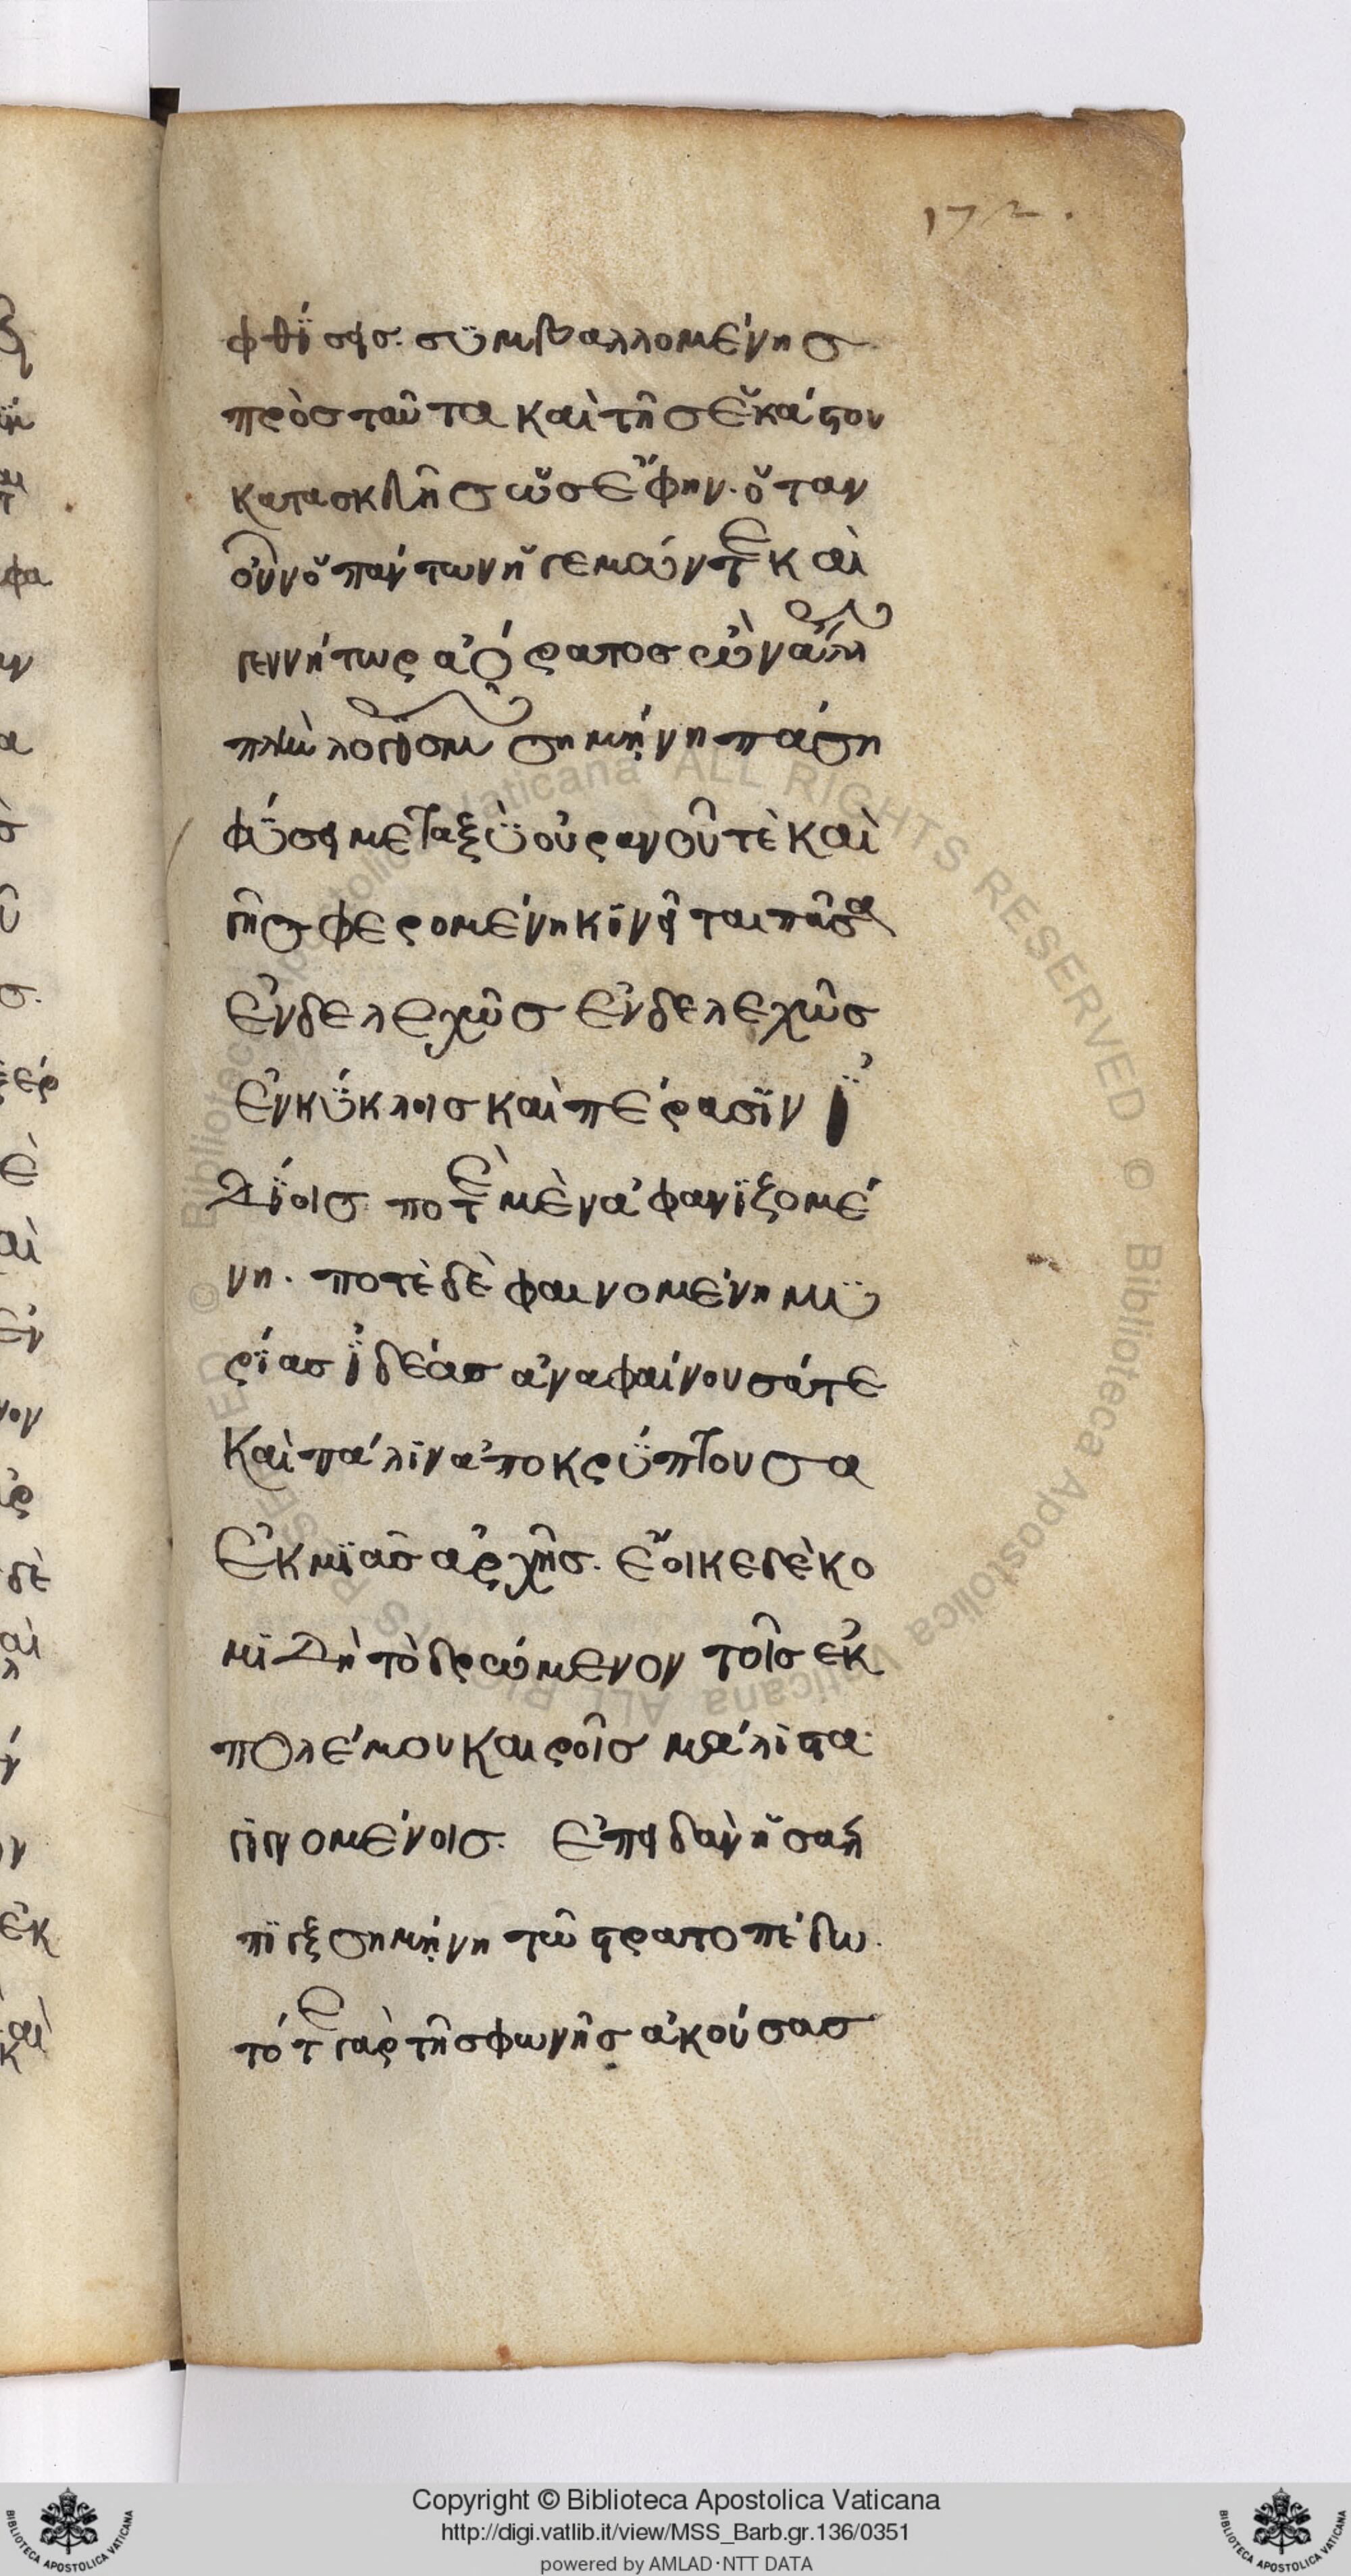 172.
φθΐσεισ. σϋμβαλλομένησ
πρὸσ ταῦτα καὶ τῆσ ἑκάστου
κατασκευῆσ ὡσ ἔφην. ὅταν
οὖν ὁ πάντων ἡγεμών τε καὶ
γεννήτωρ ἀόρατοσ ὢν ἄλλωι
πλὴν λογϊσμῶι σημήνηι πάσηι
φϋσει μεταξὺ οὐρανοῦ τὲ καὶ
γῆσ φερομένηι κϊνεῖται πᾶσα
ἐνδελεχῶσ ἐνδελεχῶσ
ἐν κϋκλοισ καὶ πέρασϊν ἰ
δΐοισ ποτὲ μὲν ἀφανϊζομέ
νη. ποτὲ δὲ φαινομένη μϋ
ρΐασ ἰδέασ ἀναφαίνουσά τε
καὶ πάλϊν ἀποκρϋπτουσα
ἐκ μϊᾶσ ἀρχῆσ. ἔοικε δὲ κο
μϊδῆι τὸ δρώμενον τοῖσ ἐκ
πολέμου καιροῖσ μάλιστα
γιγνομένοισ. ἐπειδὰν ἡ σάλ
πϊγξ σημήνηι τῶι στρατοπέδωι.
τότε γὰρ τῆσ φωνῆσ ἀκούσασ
Copyright © Biblioteca Apostolica Vaticana
http://digi.vatlib.it/view/MSS_Barb.gr.136/0351
powered by AMLAD·NTT DATA